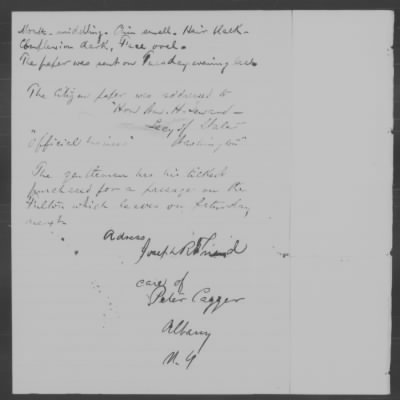 Mouth - middling. Chin small. Hair black -
Complexion dark, Face oval -
The paper was sent on Tuesday evening last
The Citizen paper was addressed to
"Hon Wm. H. Seward -
Secy of State
"Official business" Washington"
The gentleman has his ticket
purchased for a passage on the
Fulton which leaves on Saturday
next.
Adress
Joseph R
care of
Peter Cagger
Albany
N. Y